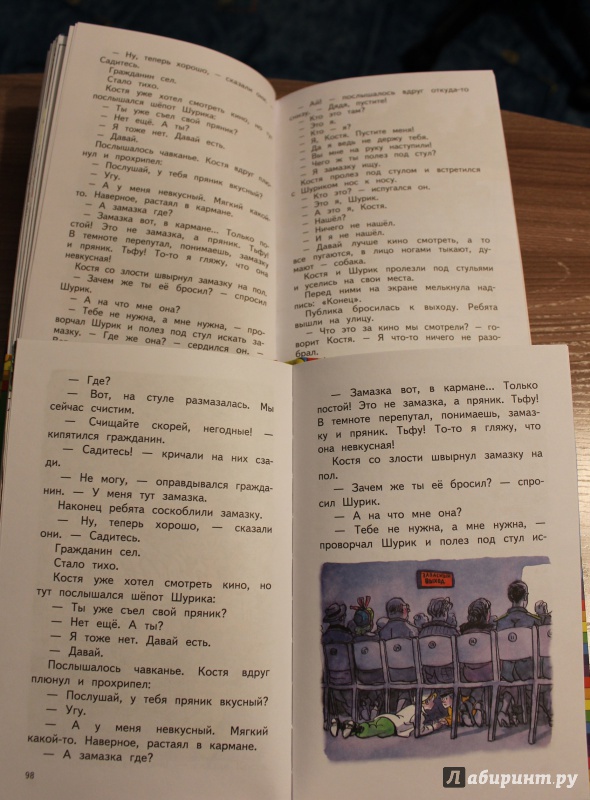 — Ну, теперь хорошо, — сказали они. —
Садитесь.
Гражданин сел.
Стало тихо.
Костя уже хотел смотреть кино, но тут
послышался шёпот Шурика:
— Ты уже съел свой пряник?
— Нет ещё. А ты?
— Я тоже нет. Давай есть.
— Давай.
Послышалось чавканье. Костя вдруг плю-
нул и прохрипел:
— Послушай, у тебя пряник вкусный?
— Угу.
— А у меня невкусный. Мягкий какой-
то. Наверное, растаял в кармане.
— А замазка где?
— Замазка вот, в кармане... Только по-
стой! Это не замазка, а пряник. Тьфу!
В темноте перепутал, понимаешь, замазку
и пряник. Тьфу! То-то я гляжу, что она
невкусная!
Костя со злости швырнул замазку на пол.
— Зачем же ты её бросил? — спросил
Шурик.
— А на что мне она?
— Тебе не нужна, а мне нужна, — про-
ворчал Шурик и полез под стул искать за-
мазку. — Где же она? — сердился он. —
— Ай! — послышалось вдруг откуда-то
снизу. — Дядя, пустите!
— Кто это там?
— Это я.
— Кто — я?
— Я, Костя. Пустите меня!
— Да я ведь не держу тебя.
— Вы мне на руку наступили!
— Чего ж ты полез под стул?
— Я замазку ищу.
Костя пролез под стулом и встретился
с Шуриком нос к носу.
— Кто это? — испугался он.
— Это я, Шурик.
— А это я, Костя.
— Нашёл?
— Ничего не нашёл.
— И я не нашёл.
— Давай лучше кино смотреть, а то
все пугаются, в лицо ногами тыкают, ду-
мают — собака.
Костя и Шурик пролезли под стульями
и уселись на свои места.
Перед ними на экране мелькнула над-
пись: «Конец».
Публика бросилась к выходу. Ребята
вышли на улицу.
— Что это за кино мы смотрели? — го-
ворит Костя. — Я что-то ничего не разо-
брал.
— Где?
— Вот, на стуле размазалась. Мы
сейчас счистим.
— Счищайте скорей, негодные! —
кипятился гражданин.
— Садитесь! — кричали на них сза-
ди.
— Не могу, — оправдывался гражда-
нин. — У меня тут замазка.
Наконец ребята соскоблили замазку.
— Ну, теперь хорошо, — сказали
они. — Садитесь.
Гражданин сел.
Стало тихо.
Костя уже хотел смотреть кино, но
тут послышался шёпот Шурика:
— Ты уже съел свой пряник?
— Нет ещё. А ты?
— Я тоже нет. Давай есть.
— Давай.
Послышалось чавканье. Костя вдруг
плюнул и прохрипел:
— Послушай, у тебя пряник вкусный?
— Угу.
— А у меня невкусный. Мягкий
какой-то. Наверное, растаял в кармане.
— А замазка где?
98
— Замазка вот, в кармане... Только
постой! Это не замазка, а пряник. Тьфу!
В темноте перепутал, понимаешь, замаз-
ку и пряник. Тьфу! То-то я гляжу, что
она невкусная!
Костя со злости швырнул замазку на
пол.
— Зачем же ты её бросил? — спро-
сил Шурик.
— А на что мне она?
— Тебе не нужна, а мне нужна, —
проворчал Шурик и полез под стул ис-
ЗАПАСНЫЙ
ВЫХОД
Лабиринт.ру